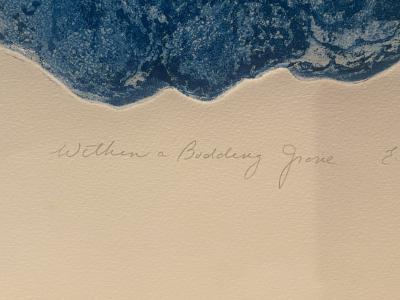 Within a Budding Grove E